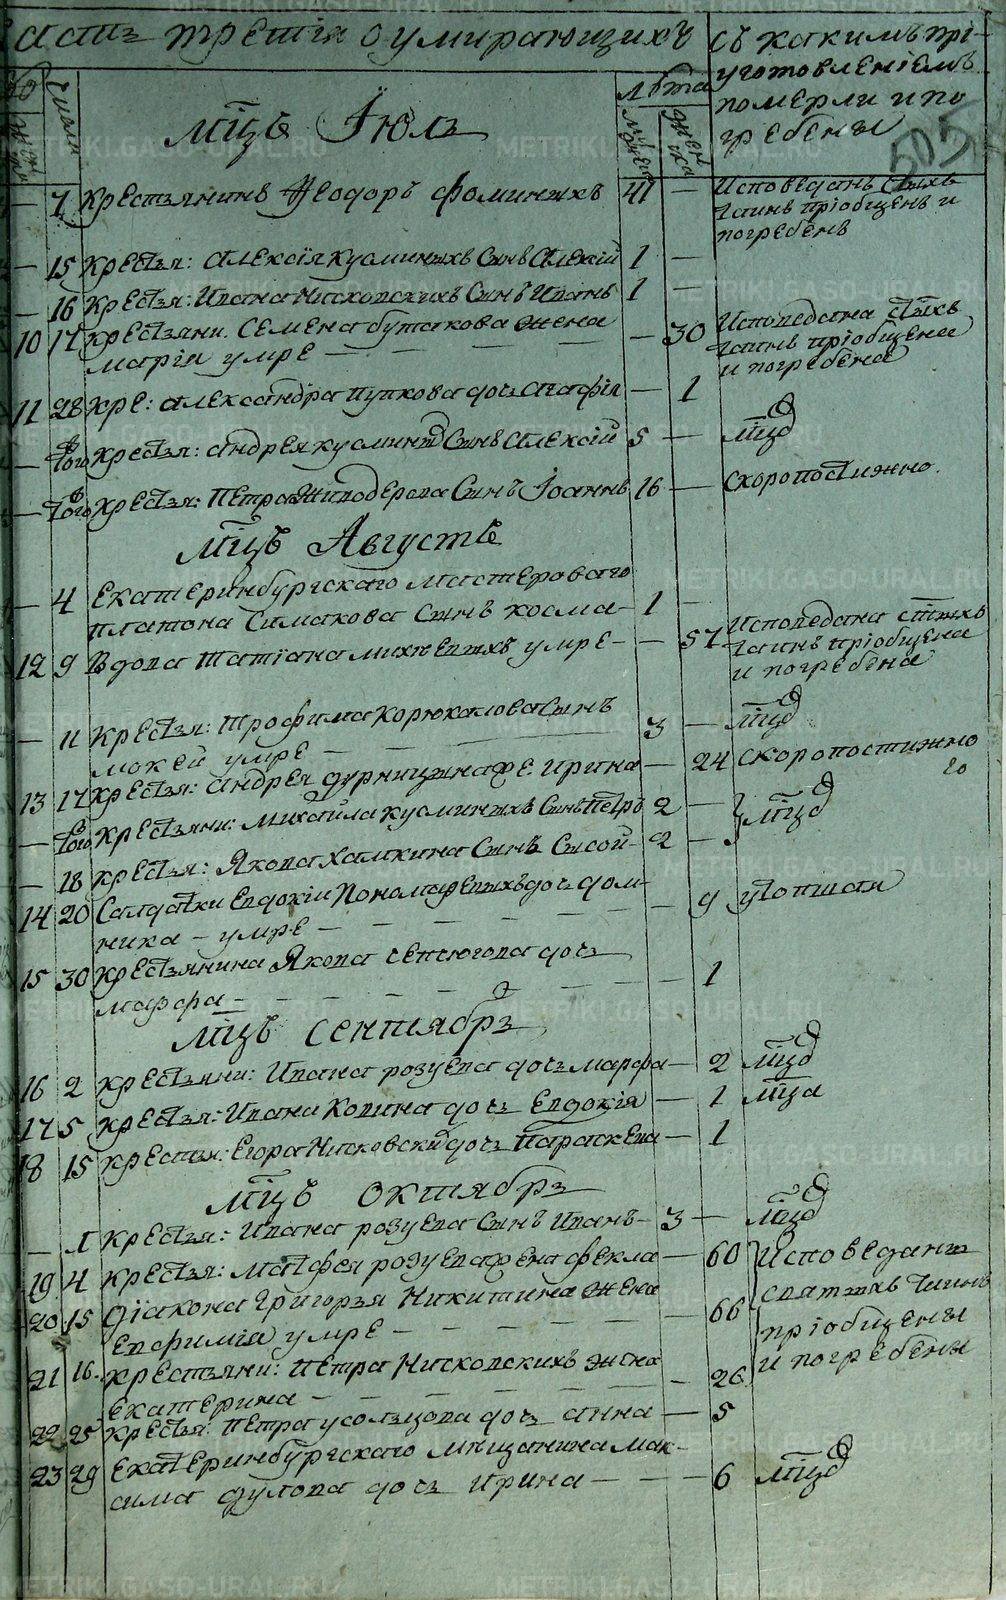 асть третїя о умирающихъ
съ какимъ прі-
уготовленіемъ
померли и по
гребены
505
числа
Лѣта
мцъ Іюль
7 Крестьянинъ Ѳеодоръ Фоминыхъ 41 —
Исповеданъ Стыхъ
таинъ пріобщенъ и
погребенъ
— 15 Крестья: Алексїя Кузминыхъ сынъ Алексій 1 —
— 16 Крестья: Ивана Нисковскихъ сынъ Иванъ 1 —
10 17 Крестьяни. Семена бутакова жена
марія умре — — — — — 30
Исповедана стыхъ
таинъ пріобщена
и погребена
11 28 Кре: Александра пупкова дочь Агафія — 1
— того Крестья: Андрея кузминыхъ сынъ Алексій 5 —
— того Крестья: Петра Живодерова сынъ Іоаннъ 16 — скоропостижно.
мцъ Августъ
— 4 Екатеринбургскаго мастероваго
платона Симакова сынъ козма — 1 —
12 9 Вдова татіана михневыхъ умре — — 57
Исповедана стыхъ
таинъ пріобщена
и погребена
— 11 Крестья: трофима корюкалова сынъ
мокей умре — — 3 —
13 17 Крестья: Андрея дурницына же. ирина — 24 скоропостижно
— того Крестьяни: михайла кузминыхъ сынъ петръ 2 —
— 18 Крестья: Якова Халкина сынъ сысой 2 —
14 20 Салдатки Евдокіи Пономаревыхъ дочь дом-
ника — умре — — — — 9 утопшая
15 30 Крестьянина Якова
дочь
марфа — — — — — 1
мцъ сентябрь
16 2 Крестьяни: Ивана розуева дочь марфа — 2
17 5 Крестья: Ивана Копина дочь Евдокія — 1
18 15 Крестья: Егора Нисковскихъ дочь Параскева — 1
мцъ октябрь
— 1 Крестья: Ивана розуева сынъ Иванъ — 3 —
19 4 Крестья: матфея розуева жена фекла — 60
20 15 Діакона Григорья Никитина жена
Евфимія умре — — — — 66
Исповеданы
святыхъ таинъ
пріобщены
и погребены
21 16. Крестьяни: Петра Нисковскихъ жена
Екатерина — — — — — 26
22 25 Крестья: Петра усольцова дочь Анна — 5
23 29 Екатеринбургскаго мещанина мак-
сима дулова дочь ирина — — — 6
METRIKI.GASO-URAL.RU